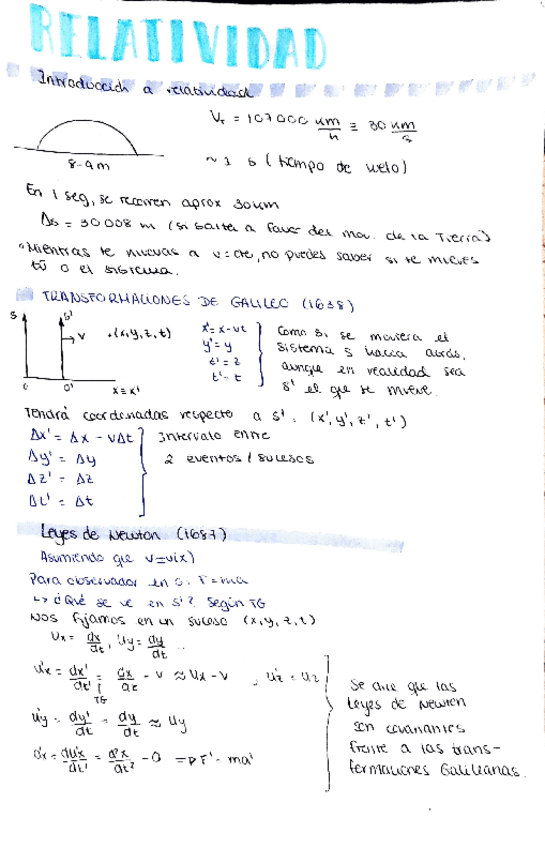 RELATIVIDAD
Introducción a relatividad
V_T = 107000 km/h ≡ 30 km/s
8-9 m
~ 1 s (tiempo de vuelo)
En 1 seg, se recorren aprox 30 km
Δs = 30008 m (si salta a favor del mov. de la Tierra)
"Mientras te muevas a v=cte, no puedes saber si te mueves
tú o el sistema.
TRANSFORMACIONES DE GALILEO (1638)
S S' v .(x,y,z,t)
x'= x-vt
y'= y
z'= z
t'= t
Como si se moviera el
sistema S hacia atrás,
aunque en realidad sea
S' el que se mueve.
0 0' x ≡ x'
Tendrá coordenadas respecto a S': (x', y', z', t')
Δx' = Δx - vΔt
Δy' = Δy
Δz' = Δz
Δt' = Δt
Intervalo entre
2 eventos / sucesos
Leyes de Newton (1687)
Asumiendo que
Para observador en S: F=ma
↳ ¿Qué se ve en S'? Según TG
Nos fijamos en un suceso (x,y,z,t)
Ux = dx/dt, Uy = dy/dt ...
U'x = dx'/dt' = dx/dt - v ≈ Ux - v , U'z = Uz
TG
U'y = dy'/dt = dy/dt ≈ Uy
a'x = dU'x/dt' = d²x/dt² - 0 => F' = ma'
Se dice que las
Leyes de Newton
son covariantes
frente a las trans-
formaciones Galileanas.